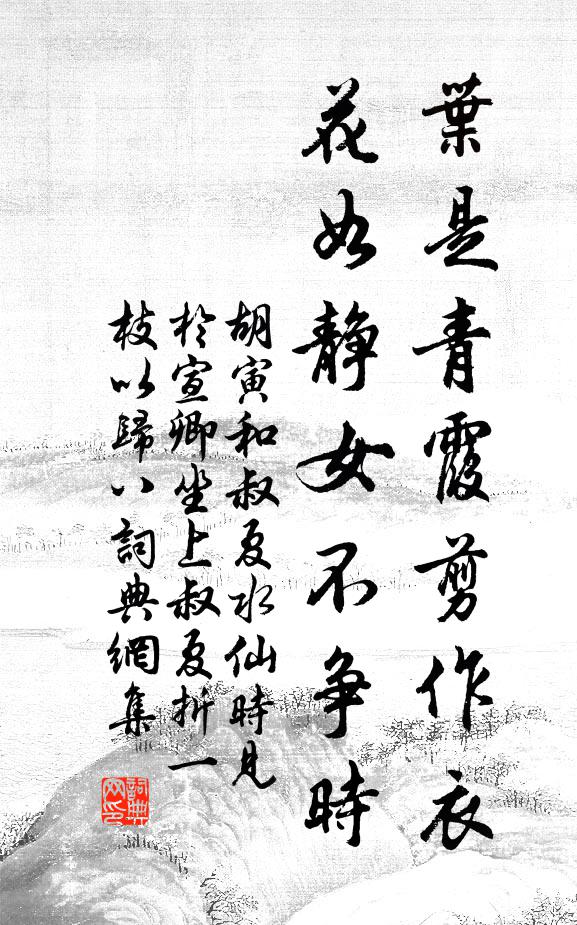 葉是青霞剪作衣
花如靜女不爭時
胡寅和叔夏水仙時見
於宣卿坐上叔夏折一
枝以歸八詞典網集